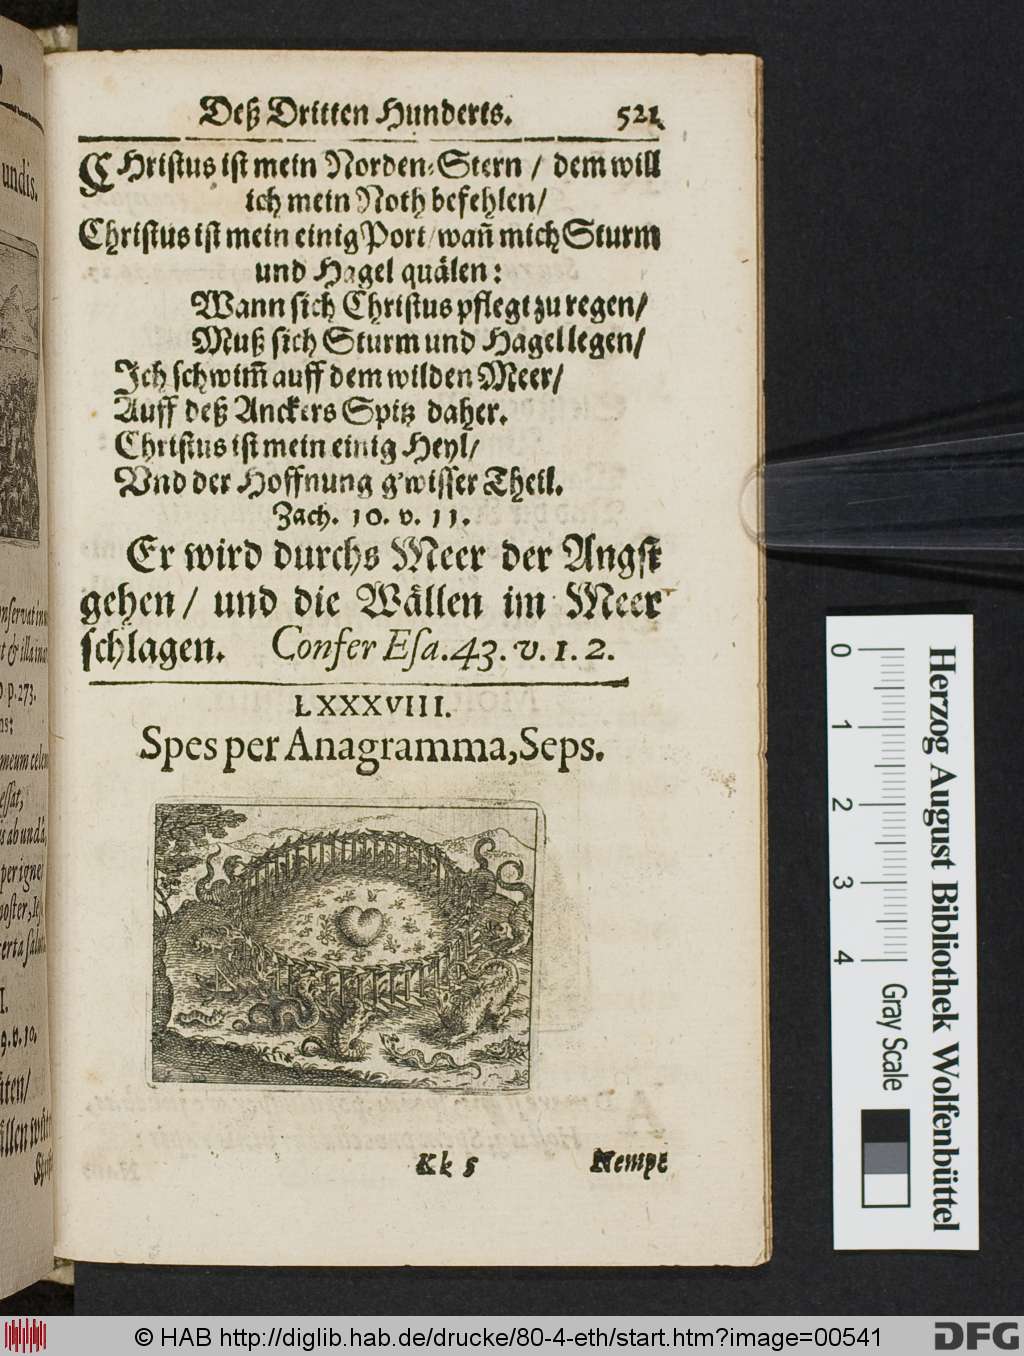 Deß Dritten Hunderts. 521
CHristus ist mein Norden-Stern / dem will
ich mein Noth befehlen/
Christus ist mein einig Port/wañ mich Sturm
und Hagel quälen:
Wann sich Christus pflegt zu regen/
Muß sich Sturm und Hagel legen/
Ich schwim̃ auff dem wilden Meer/
Auff deß Anckers Spitz daher.
Christus ist mein einig Heyl/
Vnd der Hoffnung g'wisser Theil.
Zach. 10. v. 11.
Er wird durchs Meer der Angst
gehen/ und die Wällen im Meer
schlagen. Confer Esa. 43. v. 1. 2.
LXXXVIII.
Spes per Anagramma, Seps.
Kk 5 Nempe
undis.
p. 273.
ab undâ,
per igne
9. v. 10.
0 1 2 3 4
Gray Scale
Herzog August Bibliothek Wolfenbüttel
© HAB http://diglib.hab.de/drucke/80-4-eth/start.htm?image=00541
DFG